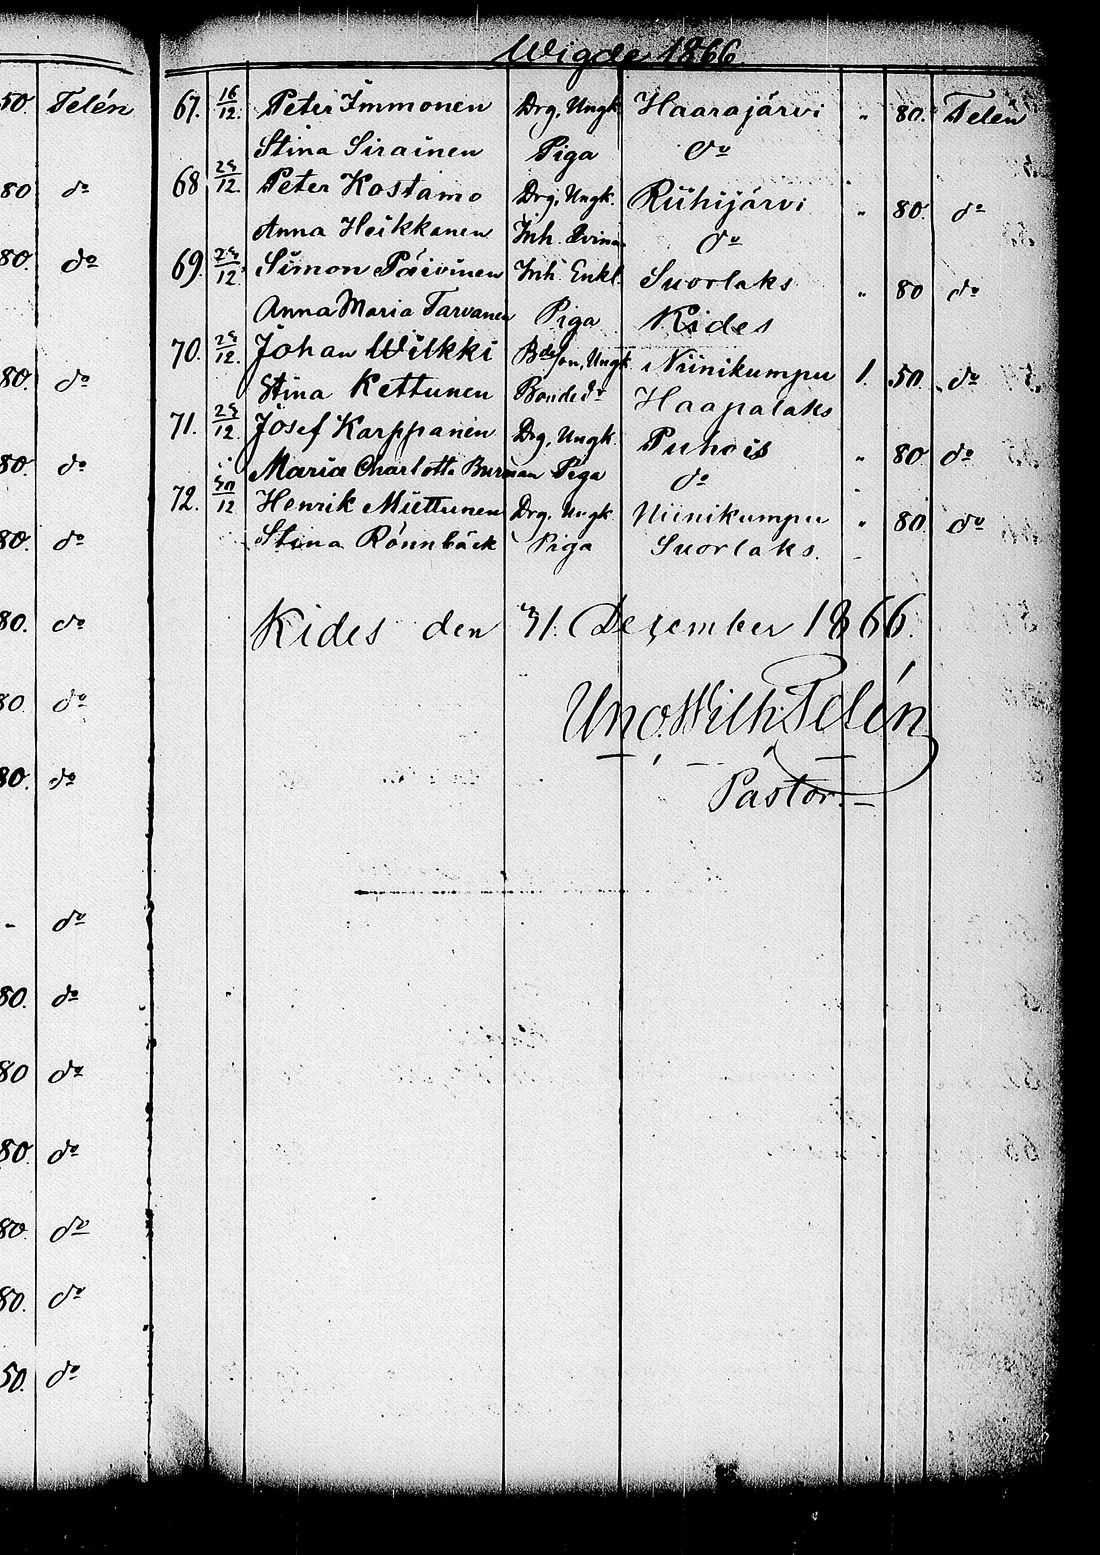 Wigde 1866.
50. Telén
80 do
80. do
80. do
80. do
80. do
80. do
80. do
80. do
- do
80. do
80 do
80. do
80. do
80. do
50. do
67. 16/12. Peter Immonen Drg, Ungk. Haarajärvi " 80. Telén
Stina Sirainen Piga do
68 /12. Peter Kostamo Drg, Ungk. Riihijärvi " 80. do
Anna Heikkanen Inh. do
69. /12. Simon Päivinen Inh. Enkl. Suorlaks " 80 do
Anna Maria Tarvanen Piga Kides
70. /12. Johan Wilkki Bdeson, Ungk Niinikumpu 1. 50. do
Stina Kettunen Bonded:r Haapalaks
71. /12. Josef Karppanen Drg, Ungk. Puhois " 80 do
Maria Charlotta Burman Piga do
72. 30/12 Henrik Miettunen Drg. Ungk Niinikumpu " 80 do
Stina Rönnbäck Piga Suorlaks.
Kides den 31. December 1866.
Uno. Wilh. Telén
Pastor.